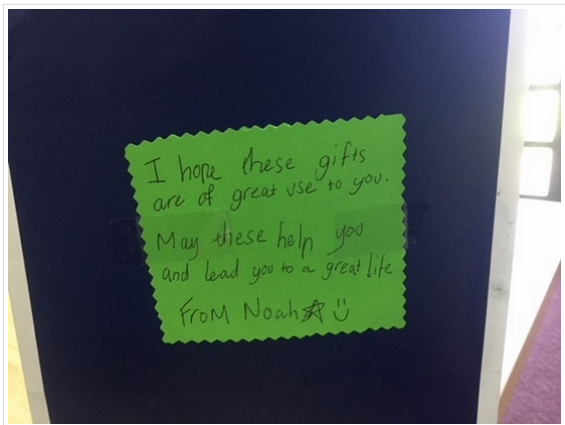 I hope these gifts
are of great use to you.
May these help you
and lead you to a great life
From Noah☆ :)